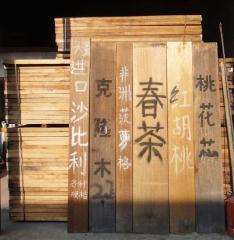 进口沙比利
克隆木
非洲菠萝格
春茶
红胡桃
桃花芯